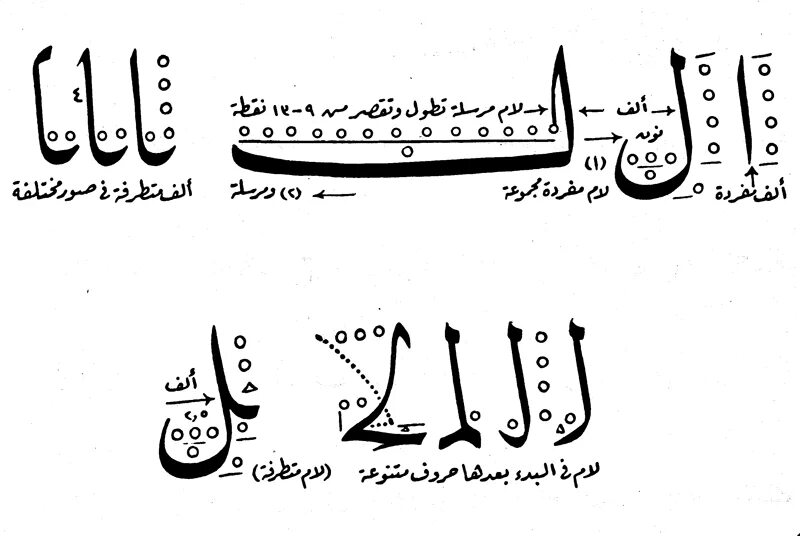 ا ل ل نا نا نا
ألف
لام مرسلة تطول وتقصر من ٩-١٣ نقطة
نون
٤
(١)
ألف مفردة
لام مفردة مجموعة
(٢) ومرسلة
ألف متطرفة في صور مختلفة
ألف
لام في البدء بعدها حروف متنوعة
(لام متطرفة)